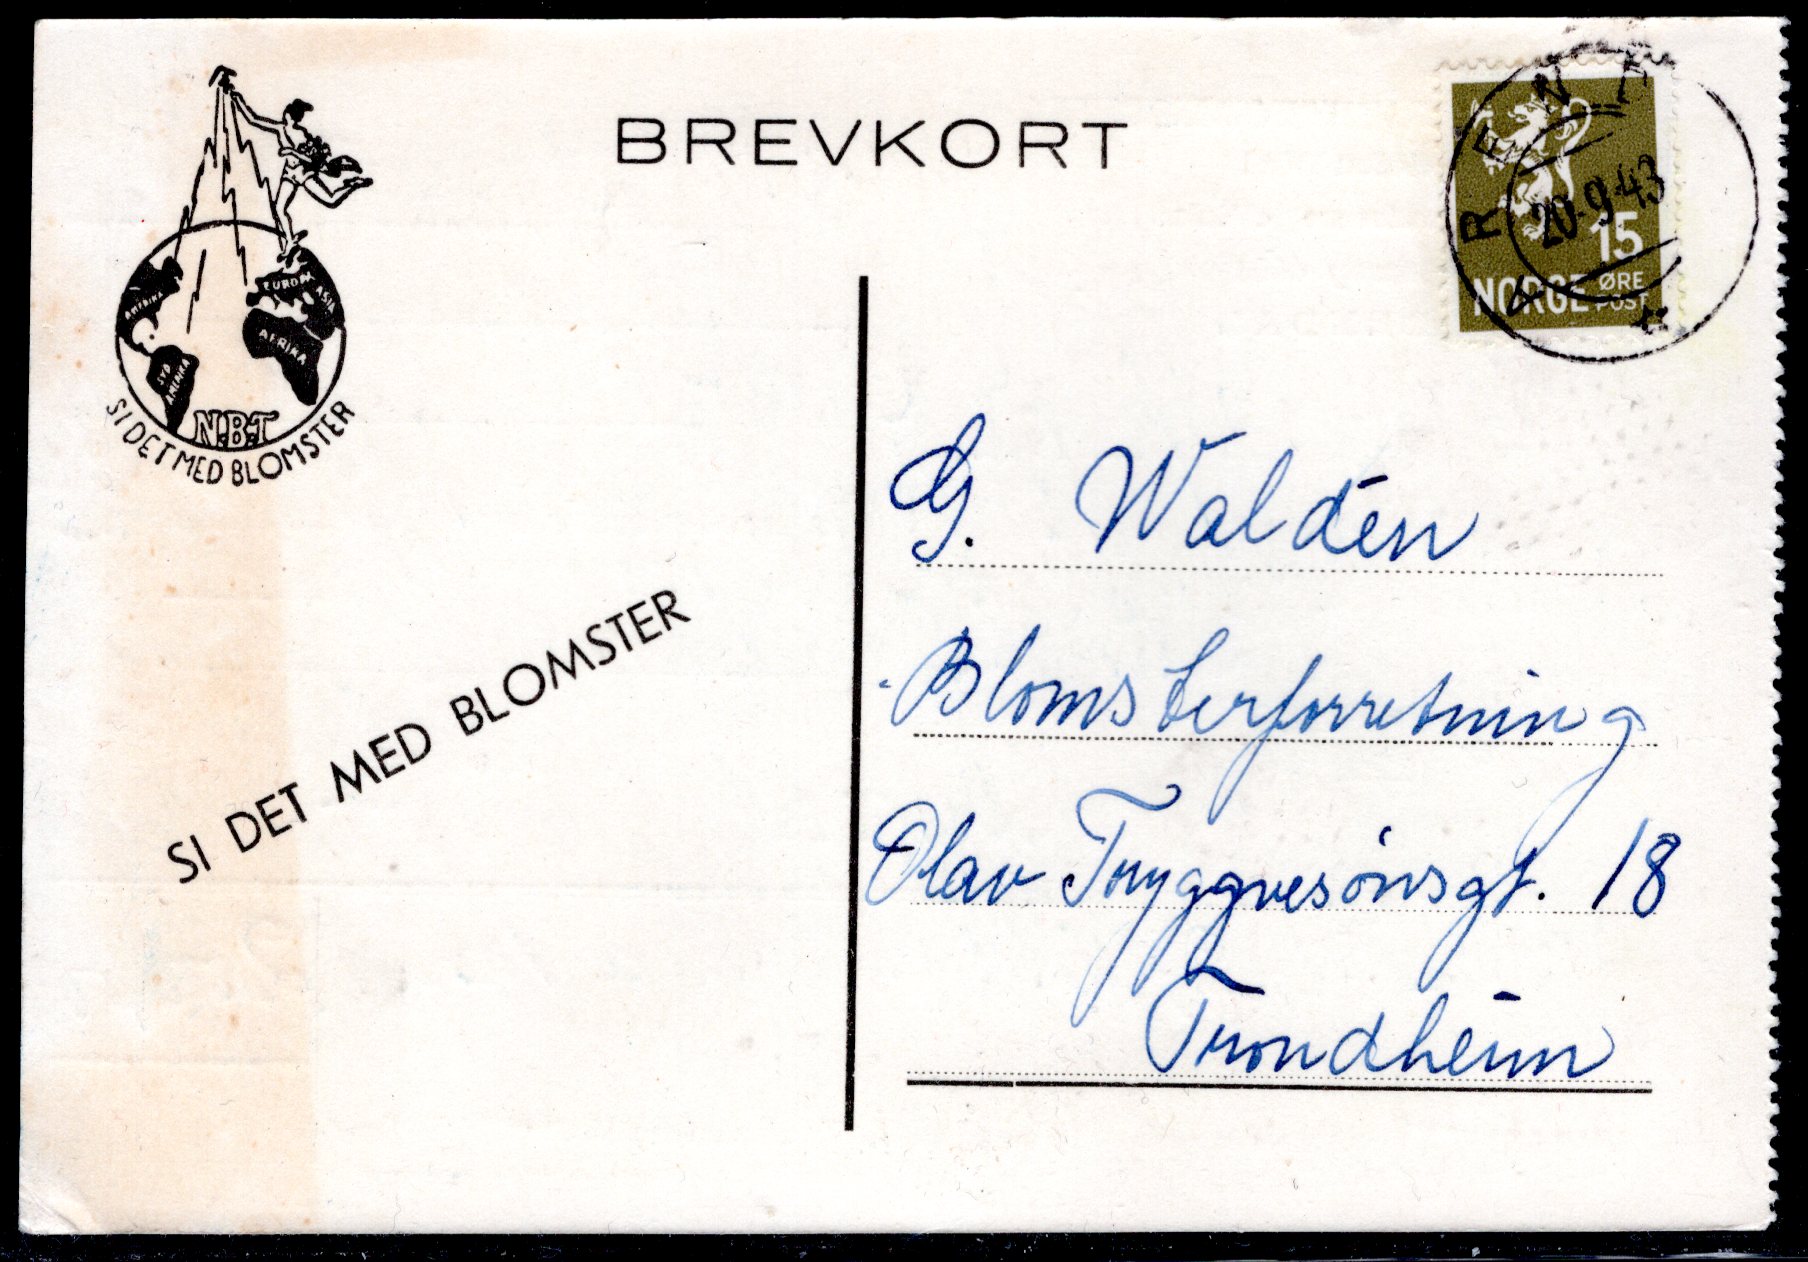 BREVKORT
AMERIKA
EUROPA
ASIA
AFRIKA
SYD
AMERIKA
N.B.T
SI DET MED BLOMSTER
SI DET MED BLOMSTER
ARENA
20-9-43
15
NORGE ØRE
POST
G. Waldén
Blomsterforretning
Olav Tryggvesónsgt. 18
Trondheim